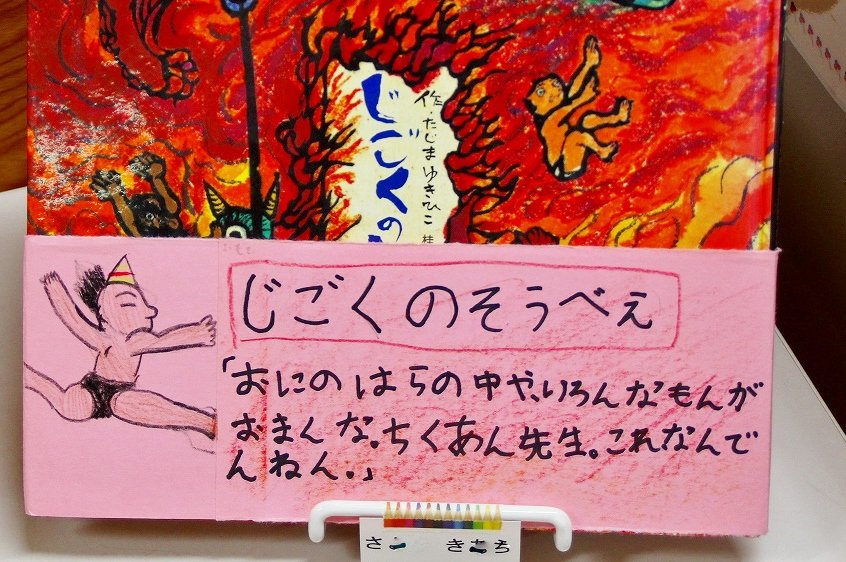 作・たじまゆきひこ
桂
じごくの
じごくのそうべえ
「おにのはらの中や、いろんなもんが
おまんな。ちくあん先生。これなんで
んねん。」